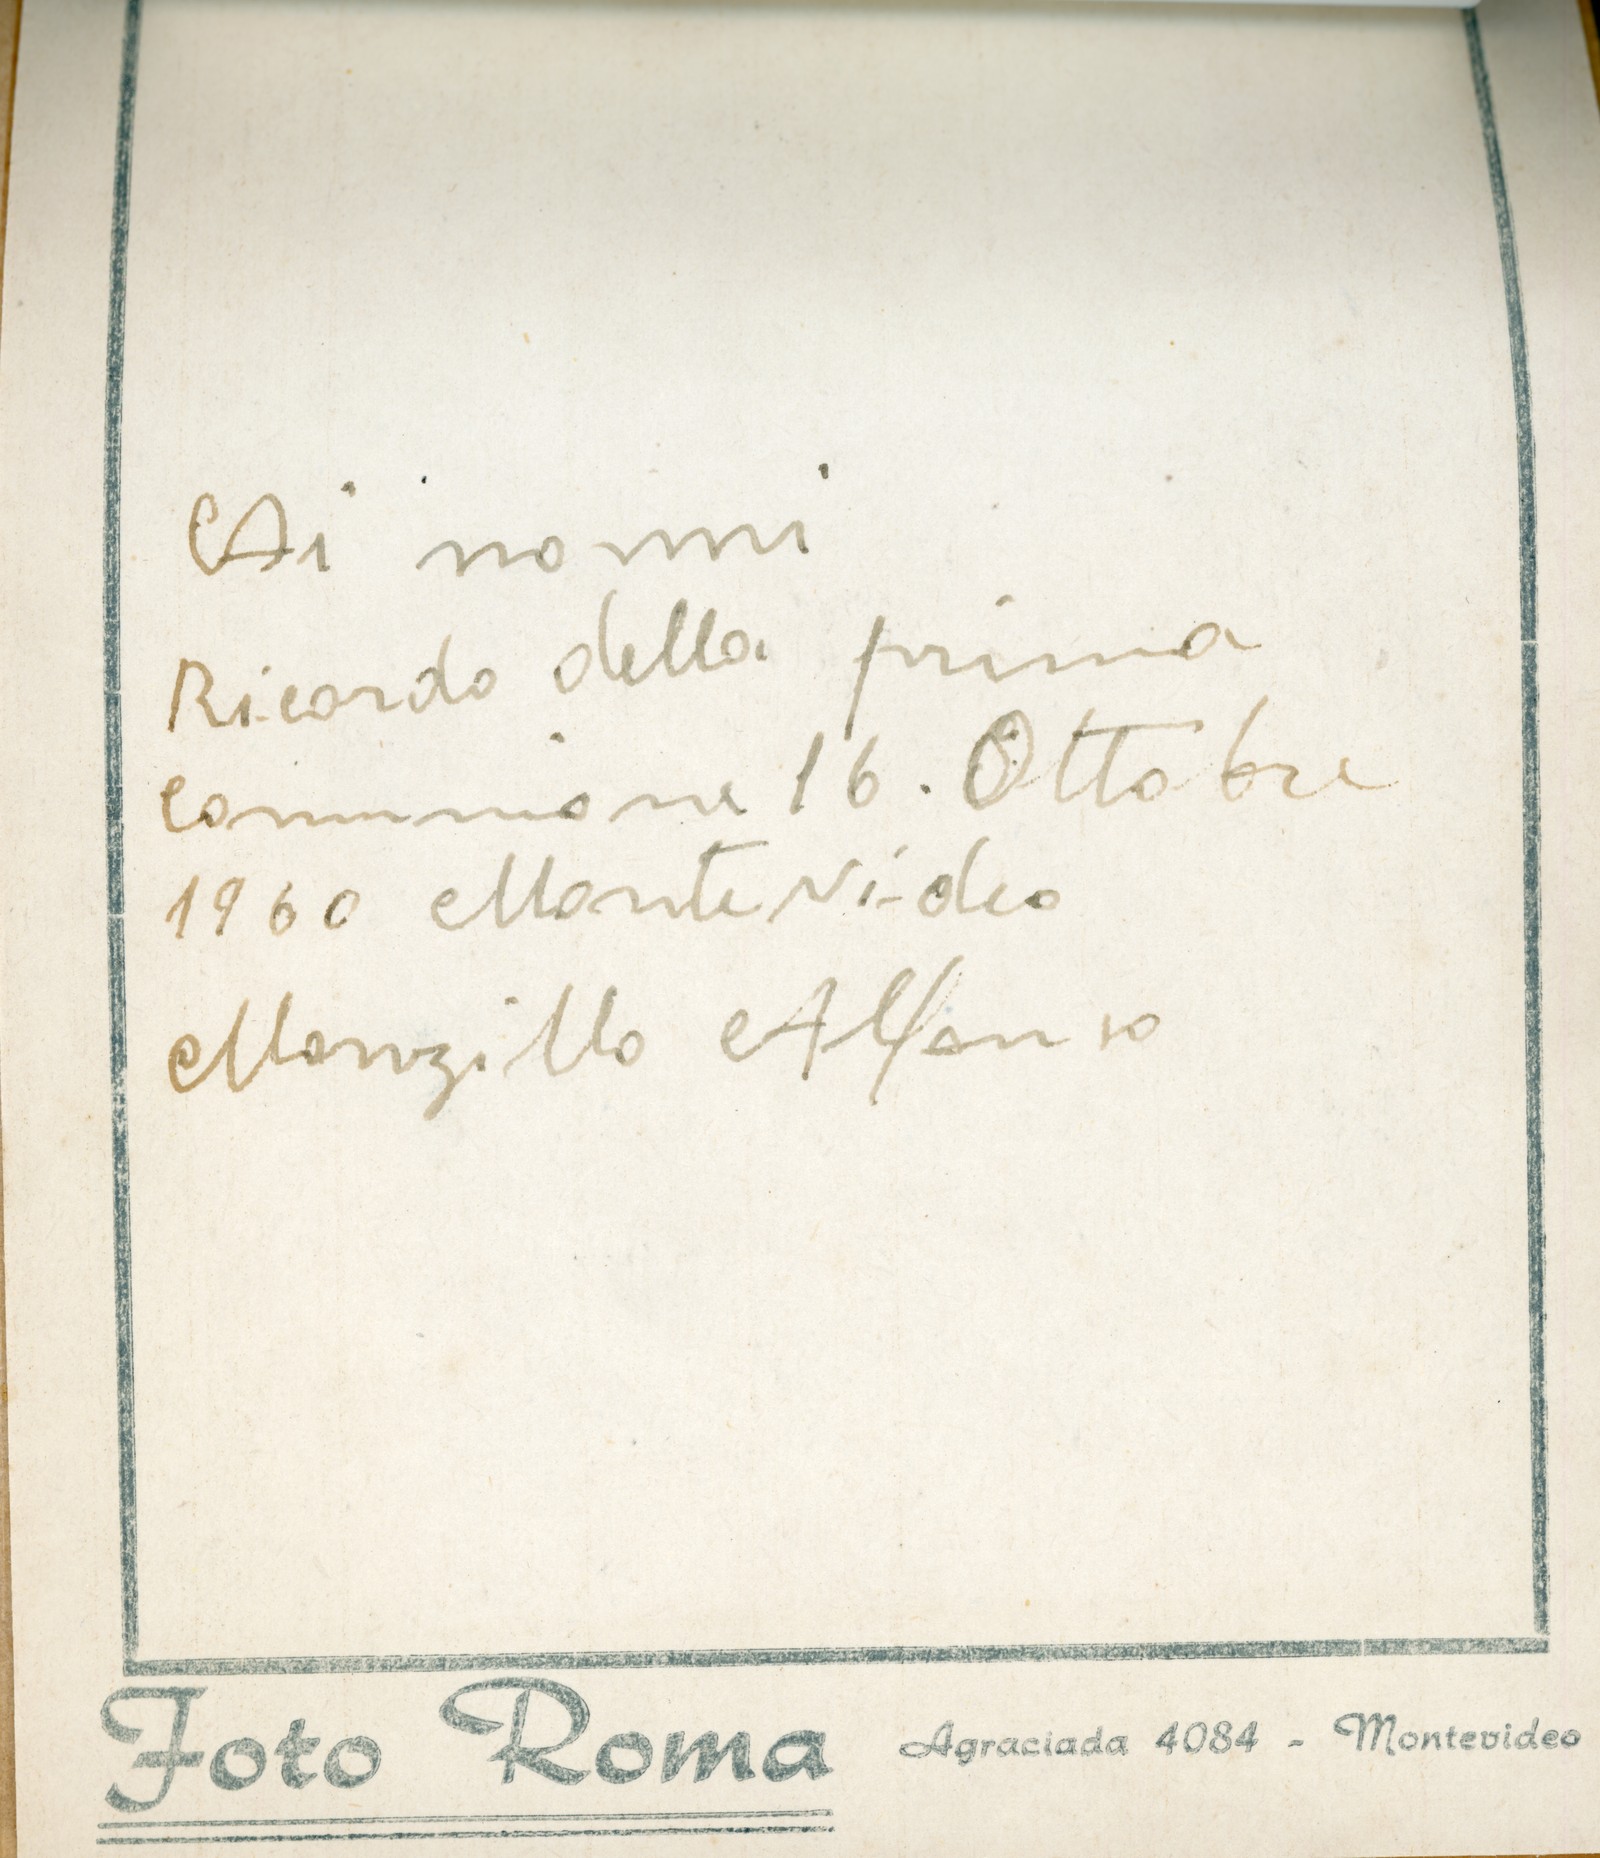 Ai nonni
Ricordo della prima
comunione 16. Ottobre
1960 Montevideo
Manzillo Alfonso
Foto Roma Agraciada 4084 - Montevideo